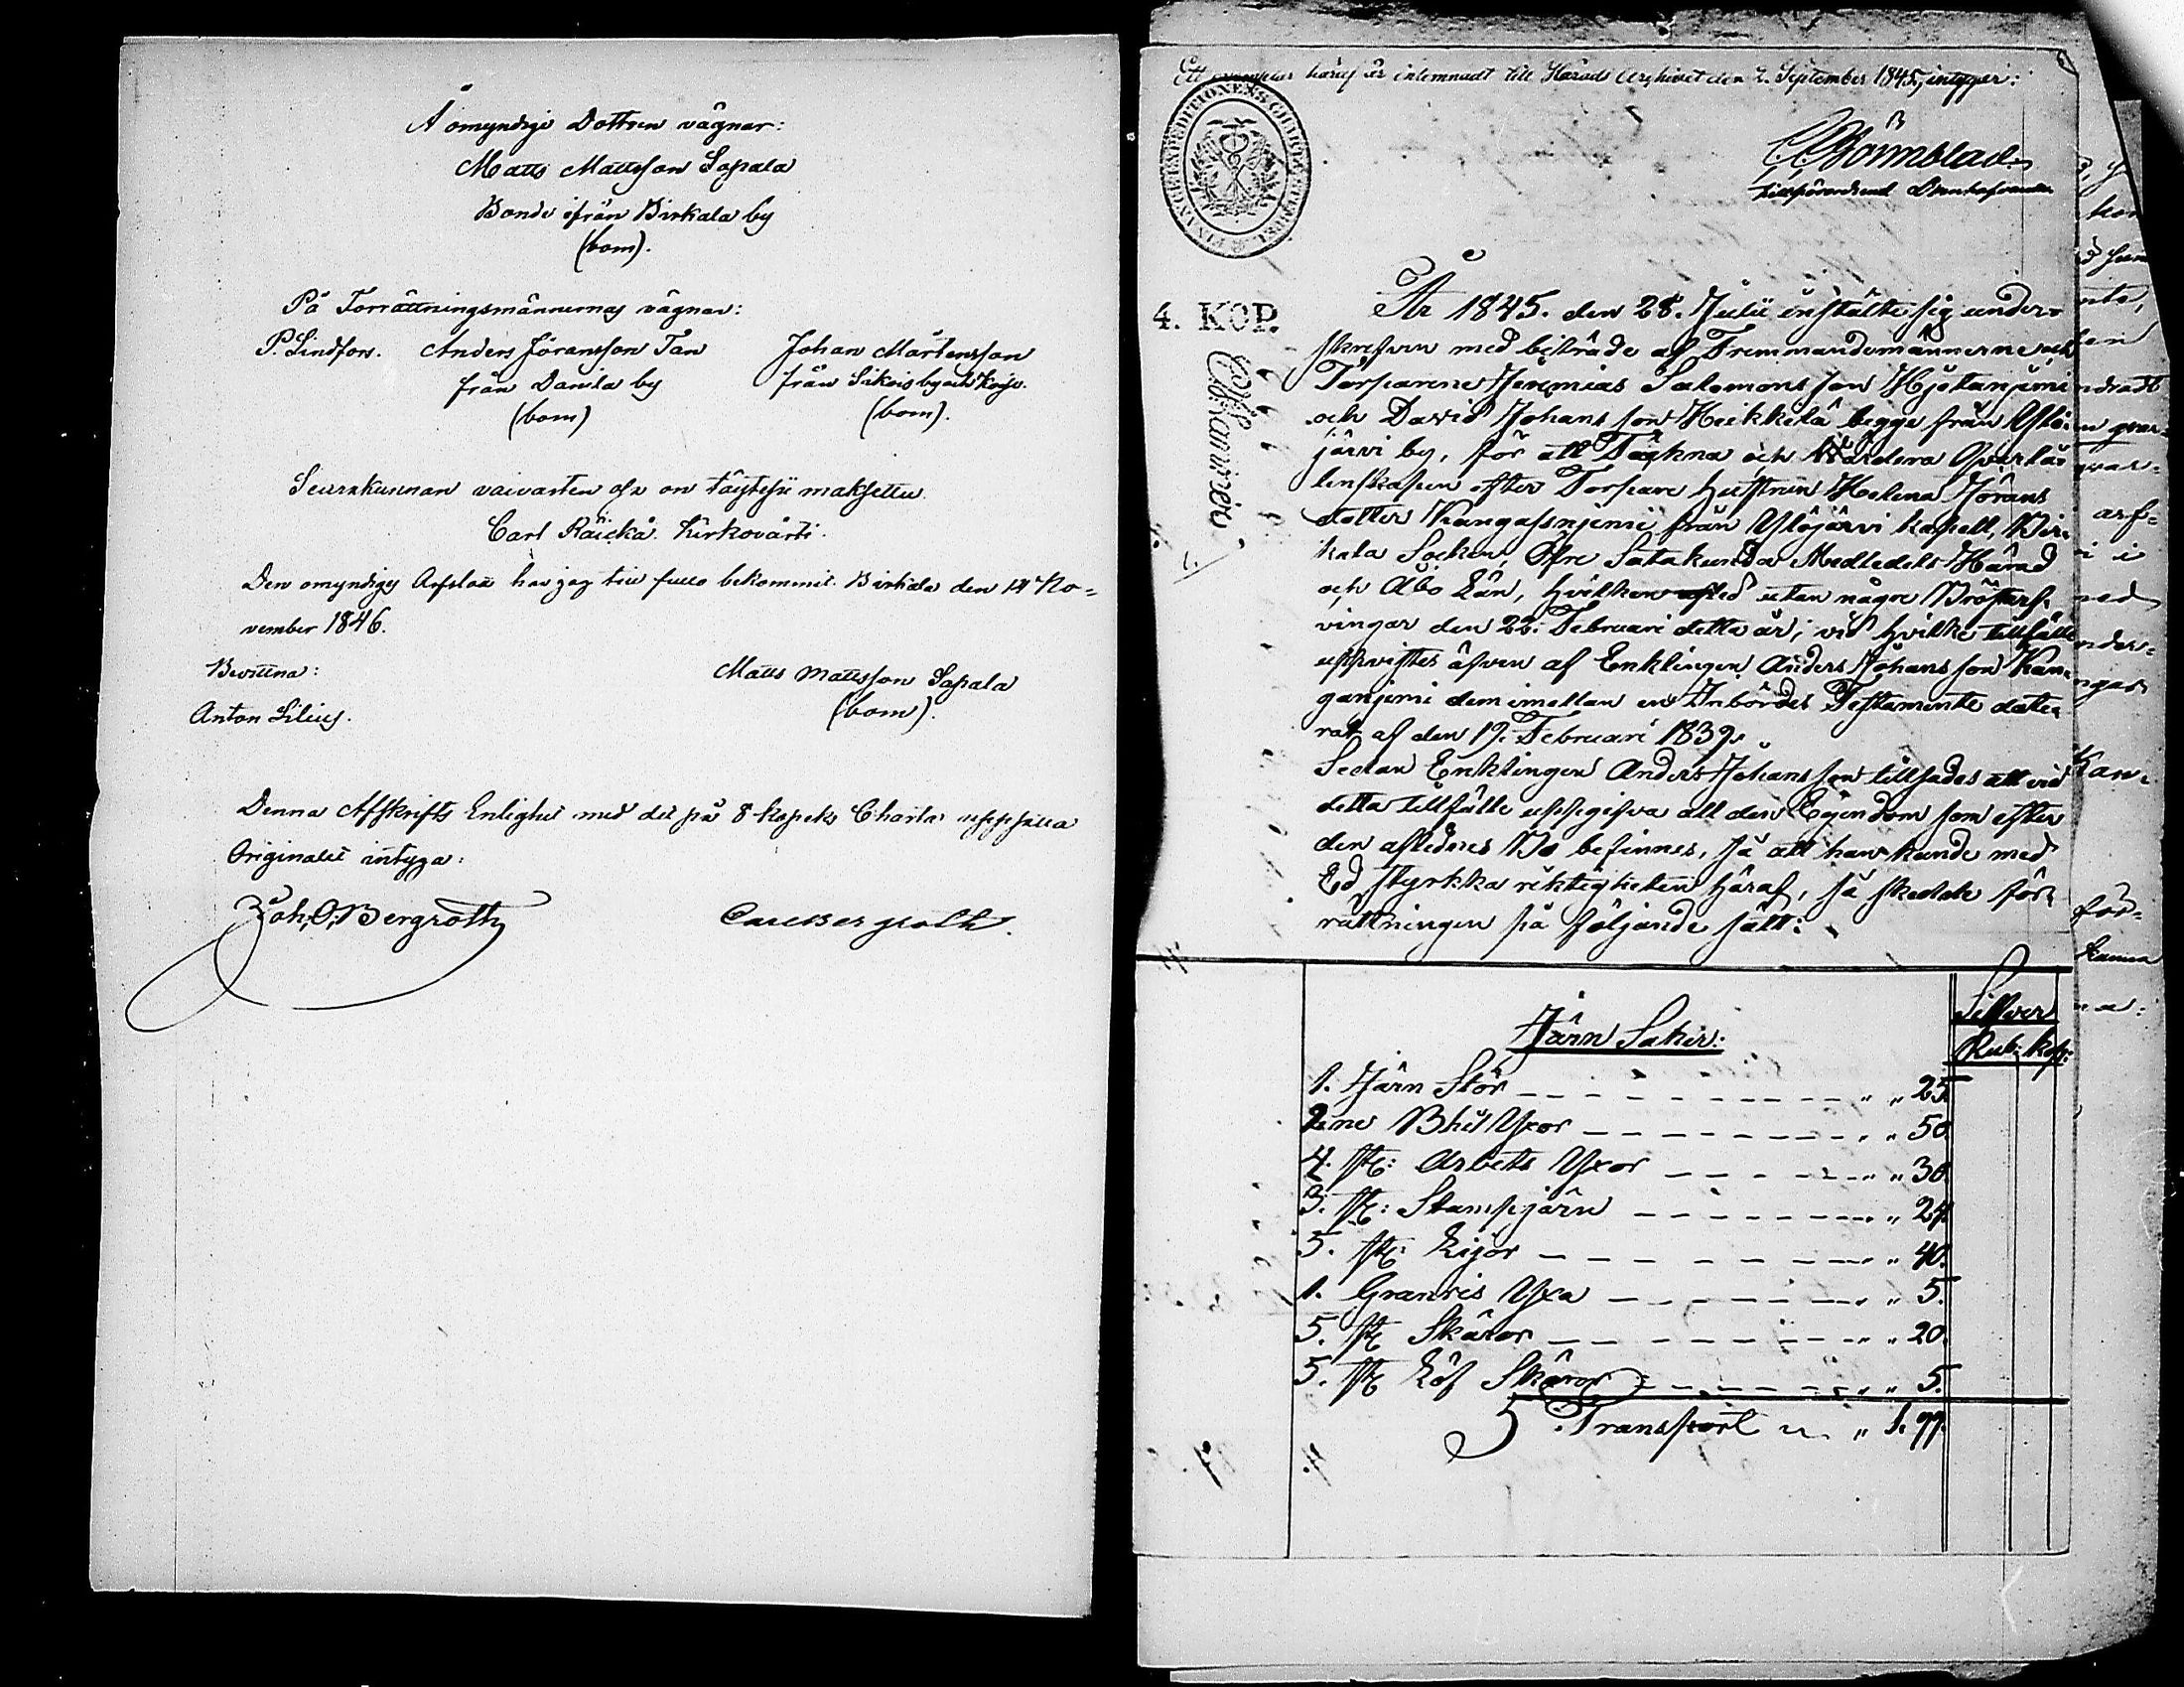 Å omyndige Dottren vägnar:
Matts Mattsson Sapala
Bonde ifrån Birkala by
(bom).
På Förrättningsmännernas vägnar:
P. Lindfors. Anders Jöransson Tan Johan Mårtensson
från Danila by från Sikois by och
(bom) (bom).
Seurakunnan vaivasten osa on täytesii maksettu.
Carl Räickä. Kirkovärti.
Den omyndiges Arfslott har jag till fullo bekommit. Birkala den 14 No=
vember 1846.
Bevittna:
Matts Mattsson Sapala
(bom).
Anton Lilius.
Denna Afskrifts Enlighet med det på 8 kopeks Charta uppsatta
Originalet intyga:
Joh. O. Bergroth Carl Bergroth.
Ett exemplar häraf är inlemnadt till Härads Archivet den 2. September 1845, intygar:
FINANCE EXPEDITIONENS CHARTÆ STEMPEL
Tillförordnad
4. KOP.
År 1845. den 28. Julii instälte sig under=
skrefven med biträde af Fremmandemännerne och
Torparene Jeremias Salomonsson Mjötanjemi
och David Johansson Heikkilä begge från Ylö=
järvi by, för att Täckna och Värdera Qvarlå=
tenskapen efter Torpare Hustrun Helena Jörans
dotter Kangasnjemi från Ylöjärvi kapell, Bir=
kala Socken, Öfre Satakunda Medledels Härad
och Åbo Län, hvilken afled utan någre Bröstarf=
vingar den 22. Februari detta år; vid hvilke tillfälle
uppvistes äfven af Enklingen Anders Johansson Kan=
ganjemi dem imellan en Inbördes Testamente date=
rat af den 19. Februari 1839.
Sedan Enklingen Anders Johansson tillsades att vid
detta tillfälle uppgifva all den Egendom som efter
den aflednes Bo befinnes, så att han kunde med
Ed styrkka riktigheten häraf, så skedde för=
rättningen på följande sätt:
Silfver
Järn Saker: Rub: kop:
1. Järn Stör " " 25.
2:ne Bhil Yxor " " 50.
4. st: Arbets Yxor " " 30.
3. st: Stampjärn " " 24.
5. st: Lijor " " 40.
1. Granris Yxa " " 5.
5. st Skäror " " 20.
5. st Löf Skäror " " 5.
Transport " 1. 99.